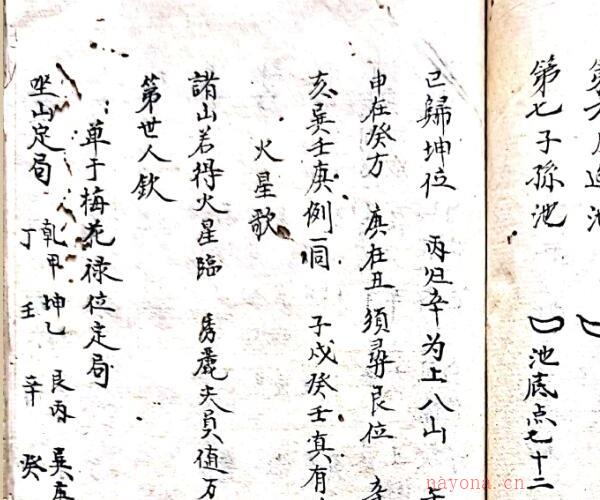 第七子孫池 凵池底点七十二
巳歸坤位 丙归辛为上八山
申在癸方 庚在丑須尋艮位 辛
亥巽壬庚例一同 子戌癸壬真有
火星歌
諸山若得火星臨 秀麗夫員值万
第世人欽
草于梅花禄位定局
坐山定局 乾甲 坤乙 艮丙 巽
丁 壬 辛 癸
nayona.cn